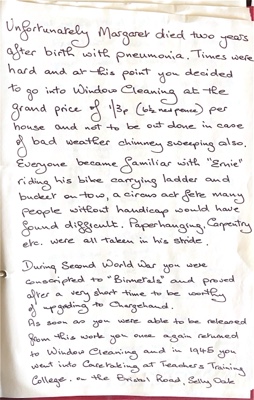 Unfortunately Margaret died two years
after birth with pneumonia. Times were
hard and at this point you decided
to go into Window Cleaning at the
grand price of 1/3p (6½ new pence) per
house and not to be out done in case
of bad weather chimney sweeping also.
Everyone became familiar with "Ernie"
riding his bike carrying ladder and
bucket on tow, a circus act fete many
people without handicap would have
found difficult. Paperhanging, Carpentry
etc. were all taken in his stride.
During Second World War you were
conscripted to "Birmetals" and proved
after a very short time to be worthy
of upgrading to Chargehand.
As soon as you were able to be released
from this work you once again returned
to Window Cleaning and in 1946 you
went into Caretaking at Teachers Training
College. on the Bristol Road, Selly Oak